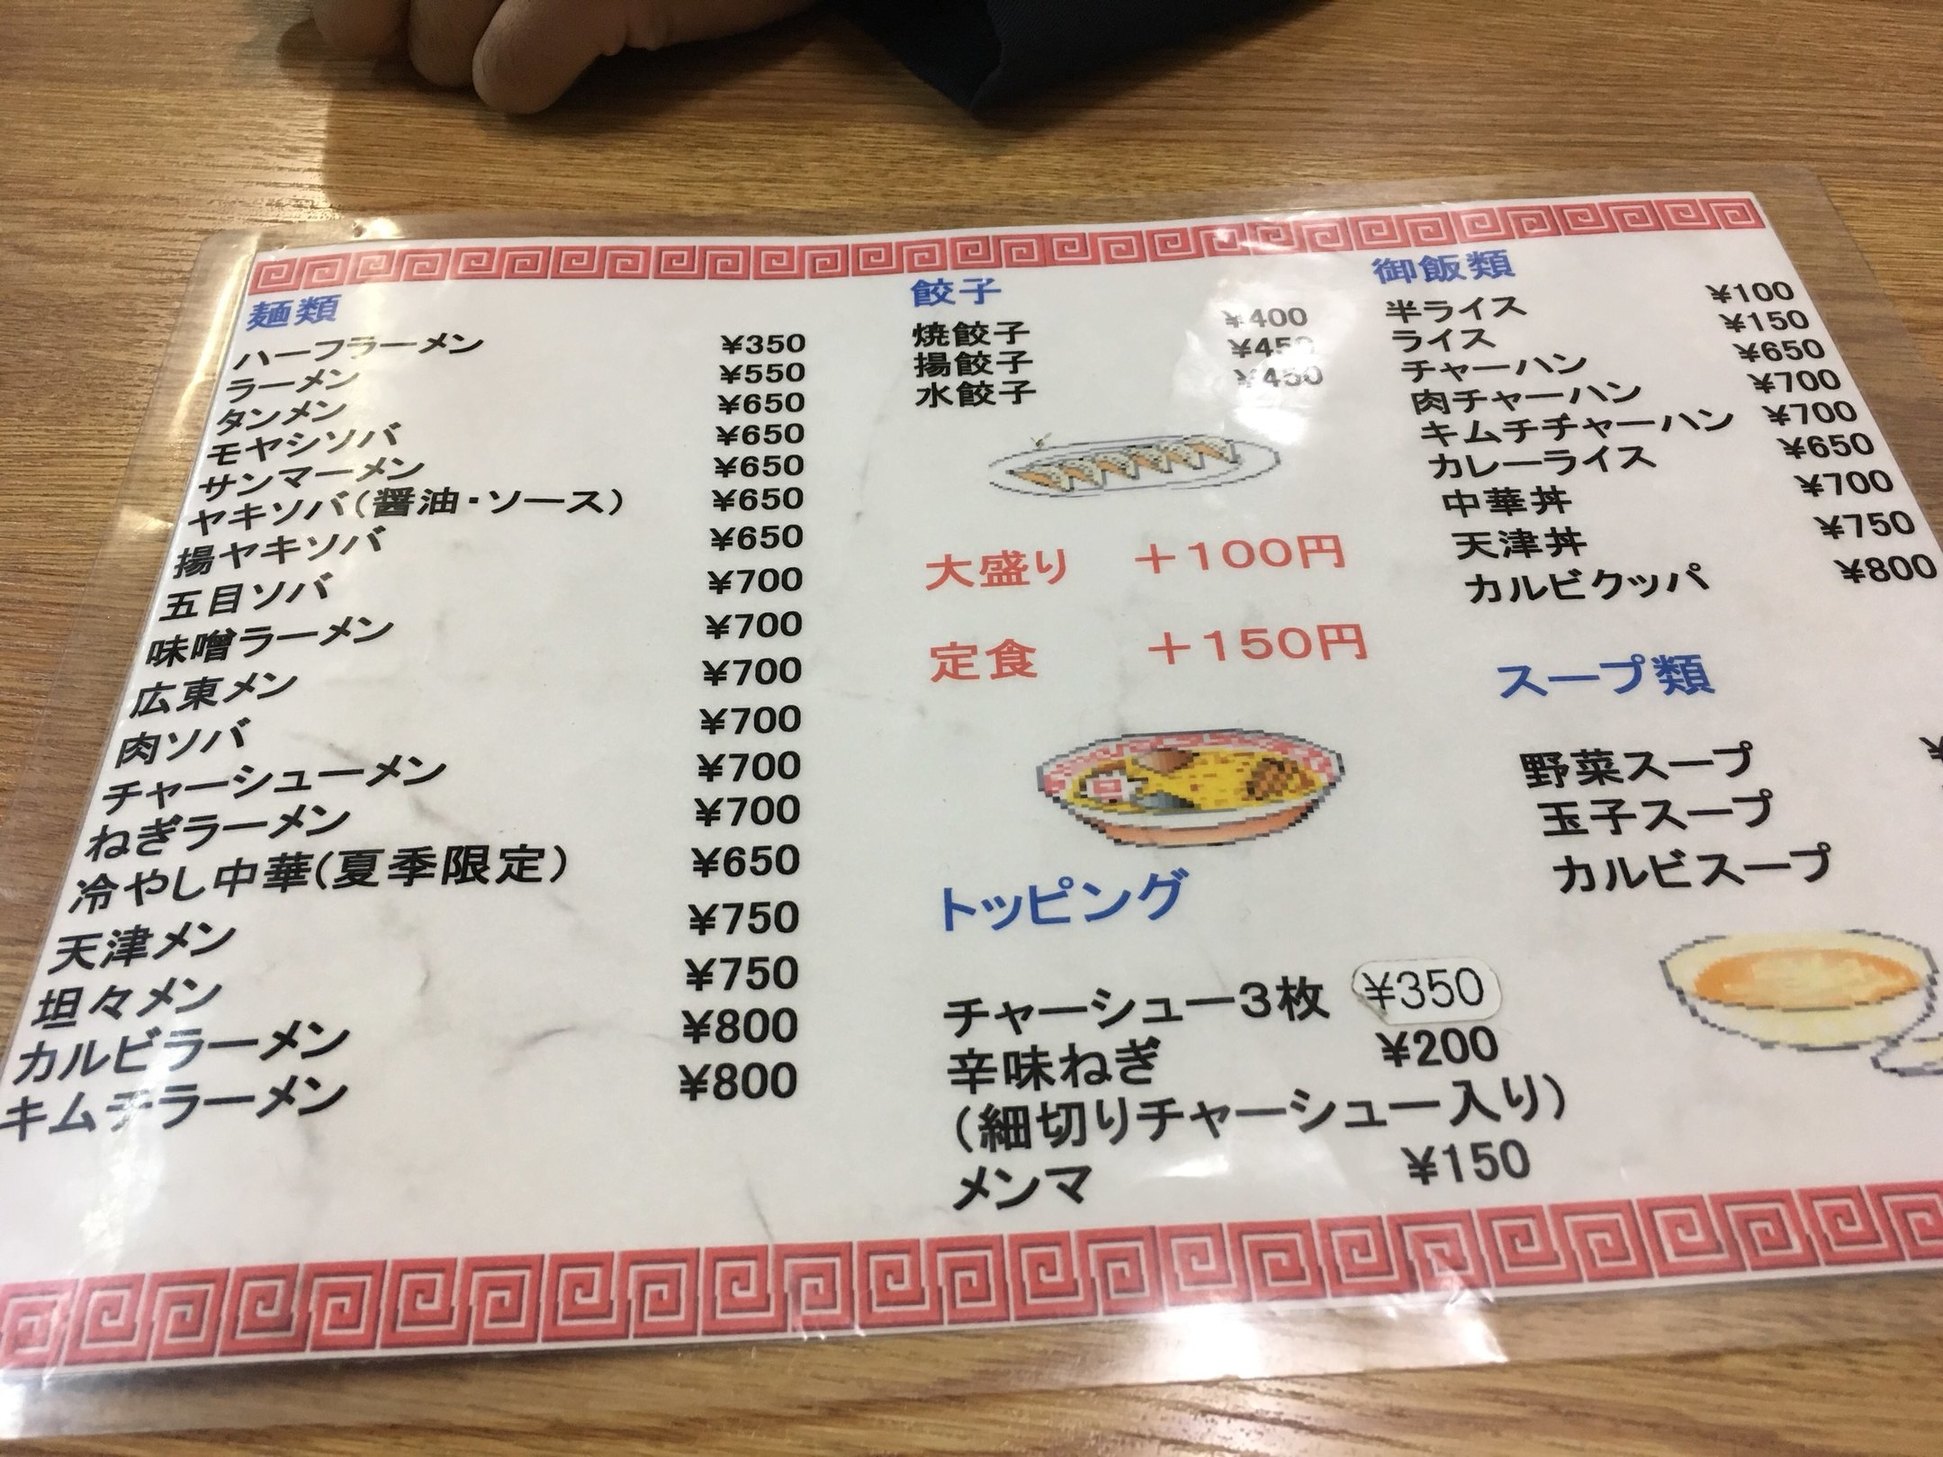 麺類
ハーフラーメン ¥350
ラーメン ¥550
タンメン ¥650
モヤシソバ ¥650
サンマーメン ¥650
ヤキソバ(醤油・ソース) ¥650
揚ヤキソバ ¥650
五目ソバ ¥700
味噌ラーメン ¥700
広東メン ¥700
肉ソバ ¥700
チャーシューメン ¥700
ねぎラーメン ¥700
冷やし中華(夏季限定) ¥650
天津メン ¥750
坦々メン ¥750
カルビラーメン ¥800
キムチラーメン ¥800
餃子
焼餃子 ¥400
揚餃子 ¥450
水餃子 ¥450
大盛り +100円
定食 +150円
トッピング
チャーシュー3枚 ¥350
辛味ねぎ ¥200
(細切りチャーシュー入り)
メンマ ¥150
御飯類
半ライス ¥100
ライス ¥150
チャーハン ¥650
肉チャーハン ¥700
キムチチャーハン ¥700
カレーライス ¥650
中華丼 ¥700
天津丼 ¥750
カルビクッパ ¥800
スープ類
野菜スープ ¥
玉子スープ
カルビスープ